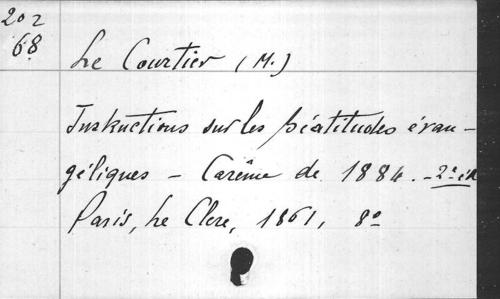 202
68
Le Courtier (M.)
Instructions sur les béatitudes évan-
géliques – Carême de 1884. – 2e éd
Paris, Le Clere, 1861, 8o